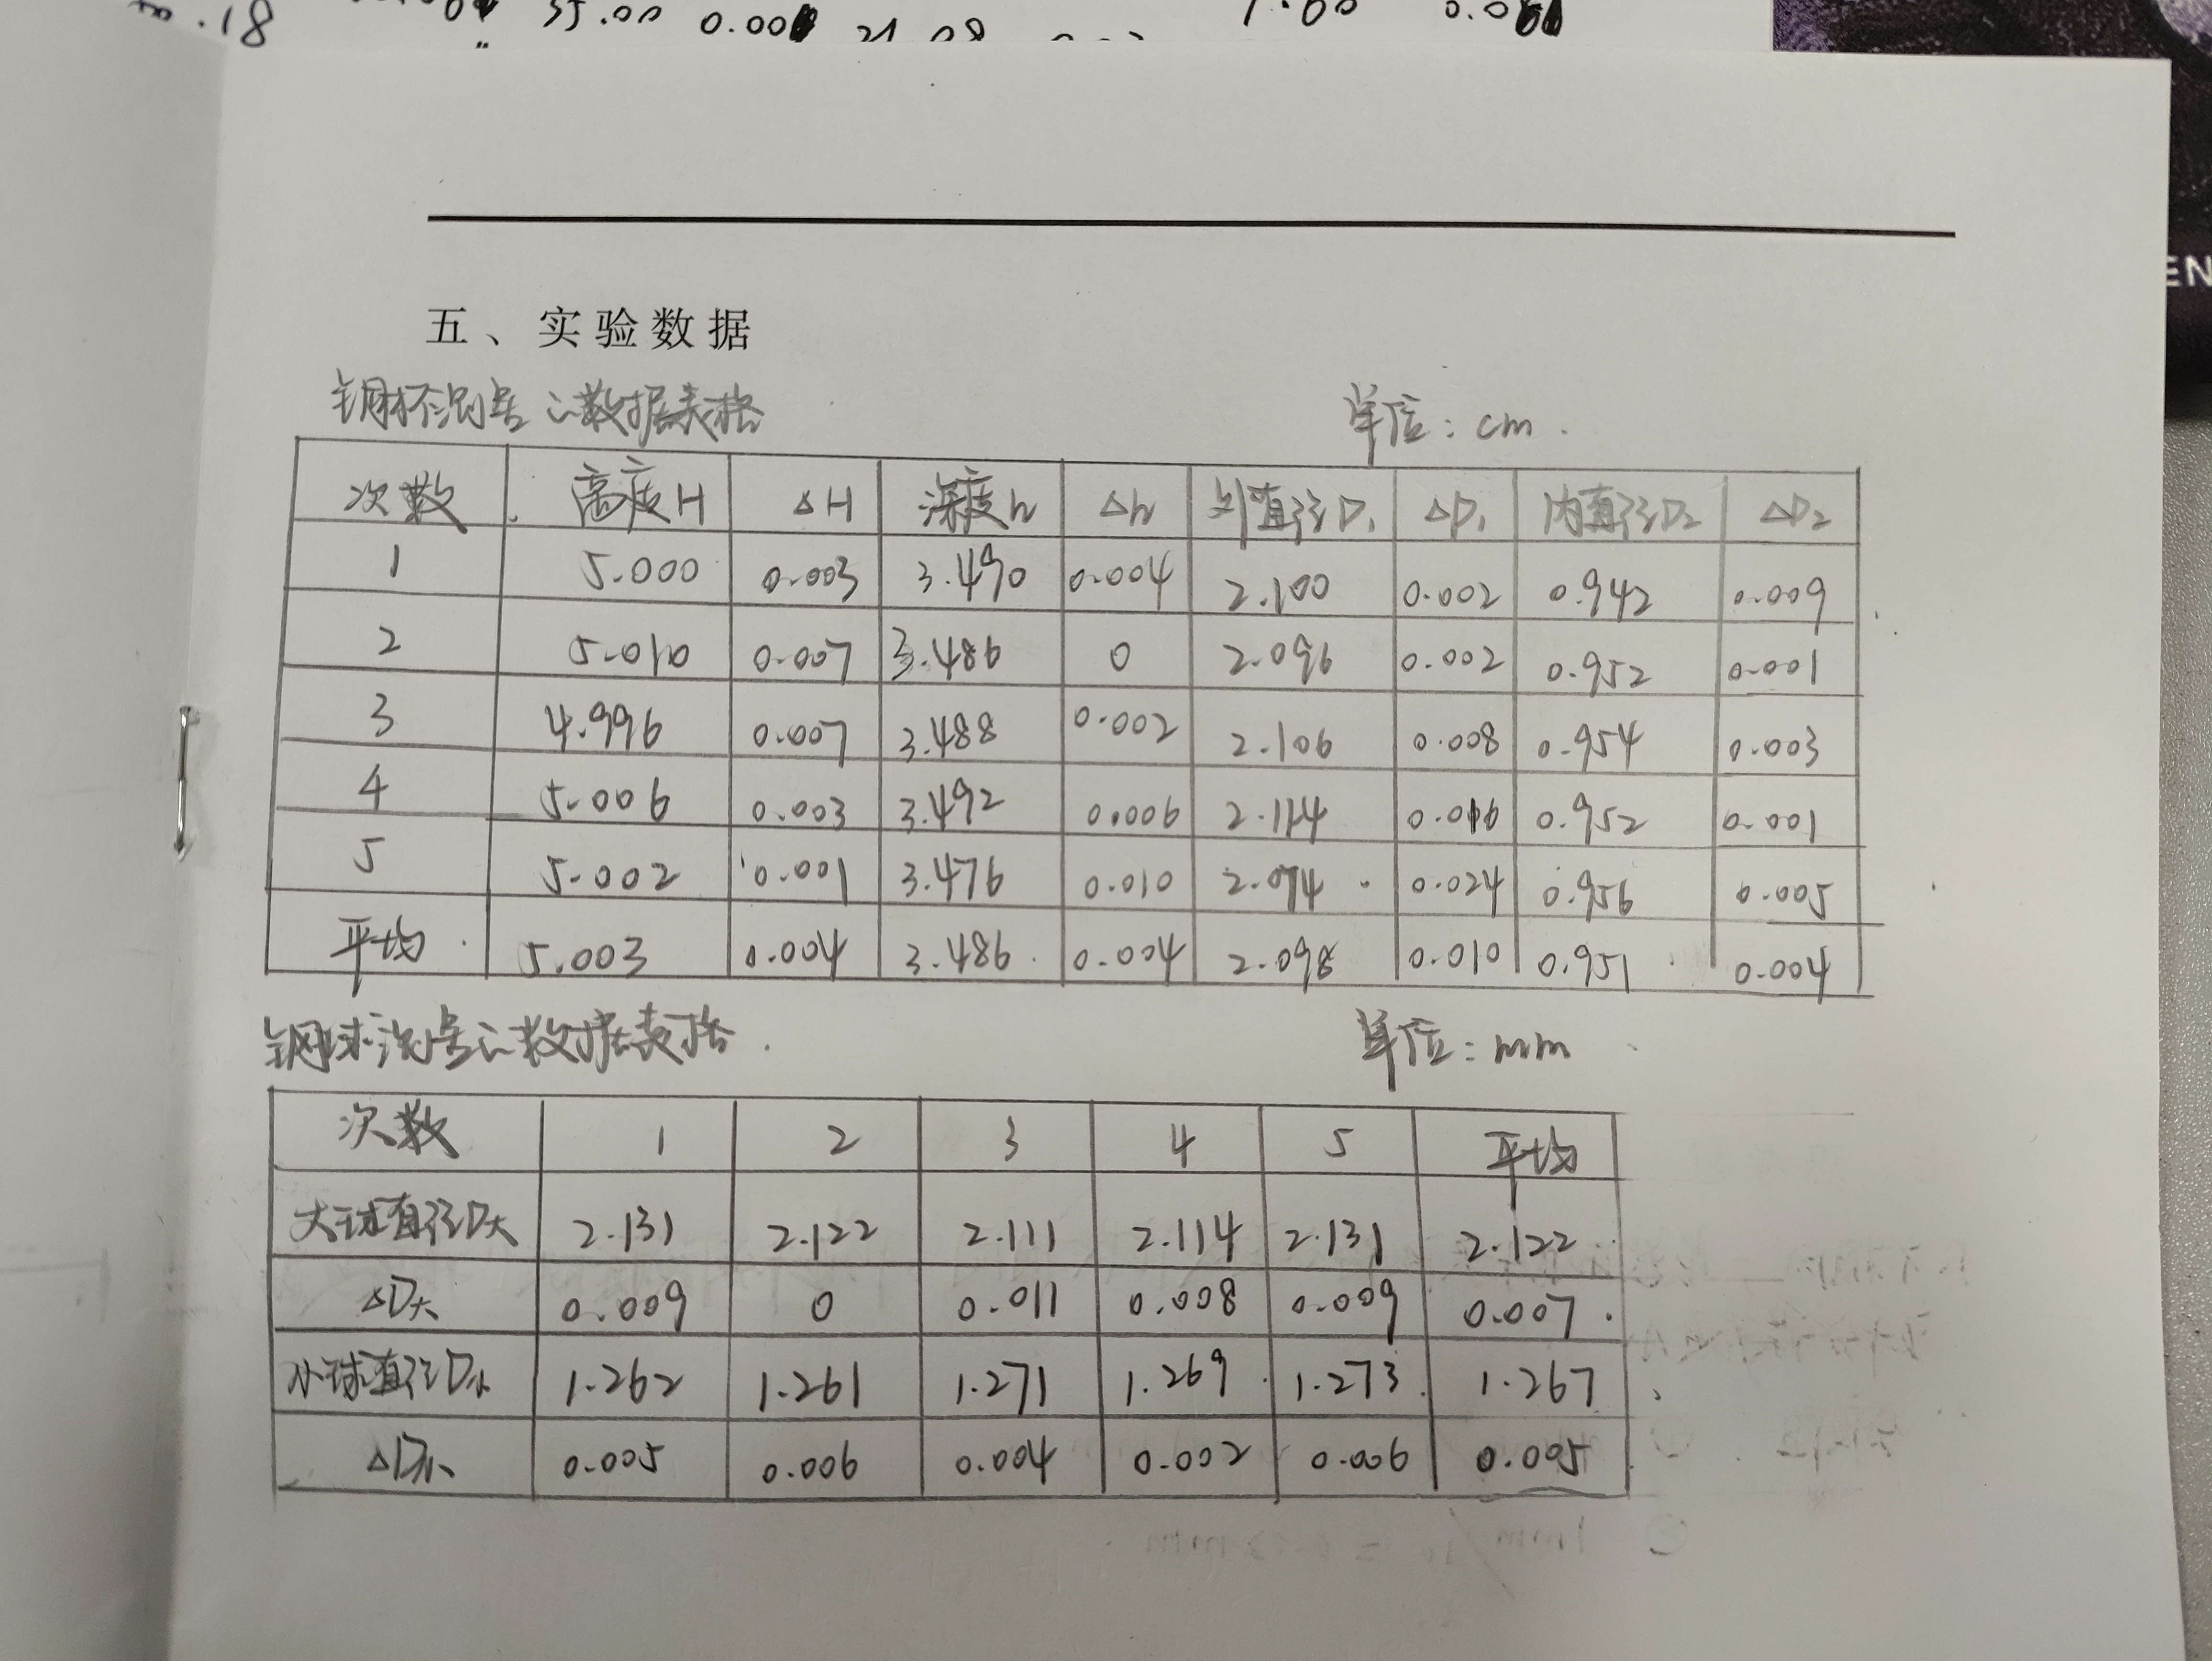 81.
55.00 0.00 21.08 1.00 0.0
EN
五、实验数据
钢杯测量之数据表格 单位：cm.
次数 高度H ΔH 深度h Δh 外直径D₁ ΔD₁ 内直径D₂ ΔD₂
1 5.000 0.003 3.490 0.004 2.100 0.002 0.942 0.009
2 5.010 0.007 3.486 0 2.096 0.002 0.952 0.001
3 4.996 0.007 3.488 0.002 2.106 0.008 0.954 0.003
4 5.006 0.003 3.492 0.006 2.114 0.016 0.952 0.001
5 5.002 0.001 3.476 0.010 2.074 0.024 0.956 0.005
平均 5.003 0.004 3.486 0.004 2.098 0.010 0.951 0.004
钢球测量之数据表格. 单位：mm
次数 1 2 3 4 5 平均
大球直径D大 2.131 2.122 2.111 2.114 2.131 2.122
ΔD大 0.009 0 0.011 0.008 0.009 0.007
小球直径D小 1.262 1.261 1.271 1.269 1.273 1.267
ΔD小 0.005 0.006 0.004 0.002 0.006 0.005